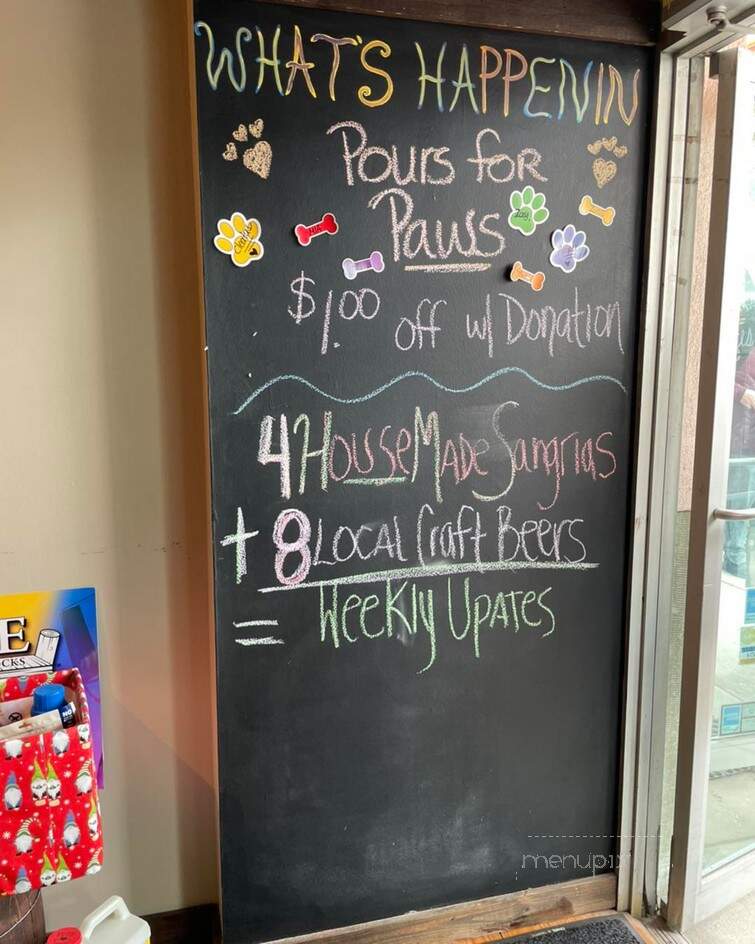 WHAT'S HAPPENIN
Pours for
Paws
$1.00 off w/ Donation
4 House Made Sangrias
+ 8 Local Craft Beers
= Weekly Upates
E
CKS
menupix